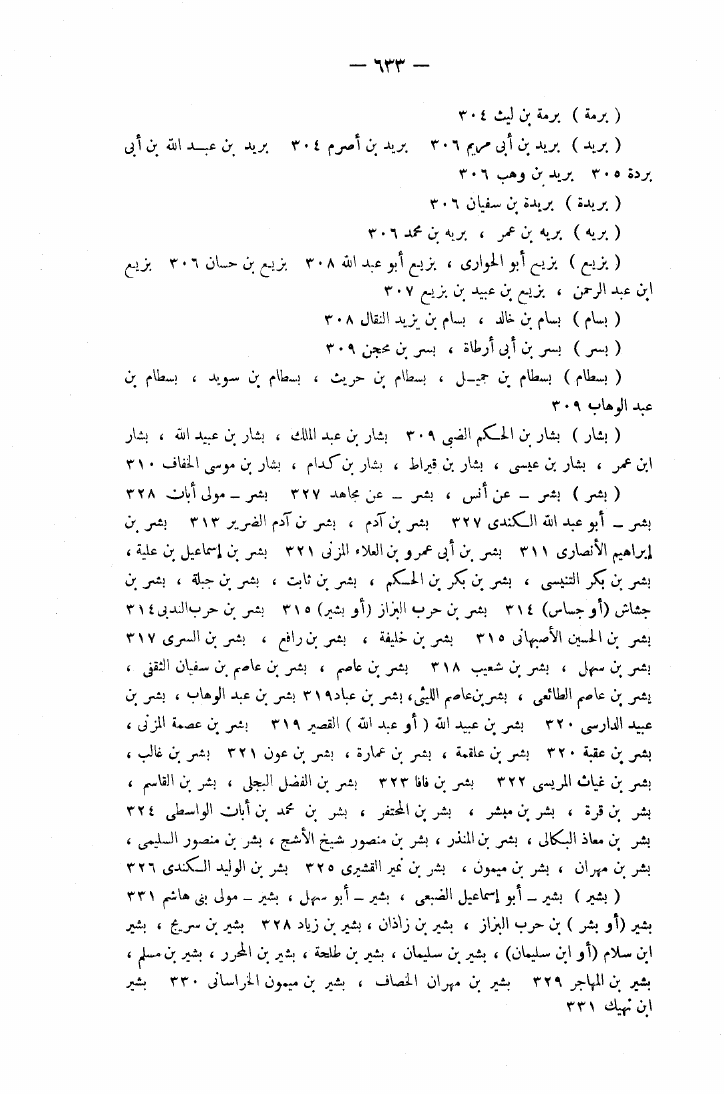 — ٦٣٣ —
( برمة ) برمة بن ليث ٣٠٤
( بريد ) بريد بن أبى مريم ٣٠٦ بريد بن أصرم ٣٠٤ بريد بن عبد الله بن أبى
بردة ٣٠٥ بريد بن وهب ٣٠٦
( بريدة ) بريدة بن سفيان ٣٠٦
( بريه ) بريه بن عمر ، بريه بن محمد ٣٠٦
( بزيع ) بزيع أبو الحوارى ، بزيع أبو عبد الله ٣٠٨ بزيع بن حسان ٣٠٦ بزيع
ابن عبد الرحمن ، بزيع بن عبيد بن بزيع ٣٠٧
( بسام ) بسام بن خالد ، بسام بن يزيد النقال ٣٠٨
( بسر ) بسر بن أبى أرطاة ، بسر بن محجن ٣٠٩
( بسطام ) بسطام بن جميل ، بسطام بن حريث ، بسطام بن سويد ، بسطام بن
عبد الوهاب ٣٠٩
( بشار ) بشار بن الحكم الضبى ٣٠٩ بشار بن عبد الملك ، بشار بن عبيد الله ، بشار
ابن عمر ، بشار بن عيسى ، بشار بن قيراط ، بشار بن كدام ، بشار بن موسى الخفاف ٣١٠
( بشر ) بشر ــ عن أنس ، بشر ــ عن مجاهد ٣٢٧ بشر ــ مولى أبان ٣٢٨
بشر ــ أبو عبد الله الكندى ٣٢٧ بشر بن آدم ، بشر بن آدم الضرير ٣١٣ بشر بن
إبراهيم الأنصارى ٣١١ بشر بن أبى عمرو بن العلاء المزنى ٣٢١ بشر بن إسماعيل بن علية ،
بشر بن بكر التنيسى ، بشر بن بكر بن الحكم ، بشر بن ثابت ، بشر بن جبلة ، بشر بن
جشاش (أو جساس) ٣١٤ بشر بن حرب البزاز (أو بشير) ٣١٥ بشر بن حرب الندبى ٣١٤
بشر بن الحسين الأصبهانى ٣١٥ بشر بن خليفة ، بشر بن رافع ، بشر بن السرى ٣١٧
بشر بن سهل ، بشر بن شعيب ٣١٨ بشر بن عاصم ، بشر بن عاصم بن سفيان الثقفى ،
بشر بن عاصم الطائعى ، بشر بن عاصم الليثى ، بشر بن عباد ٣١٩ بشر بن عبد الوهاب ، بشر بن
عبيد الدارسى ٣٢٠ بشر بن عبيد الله ( أو عبد الله ) القصير ٣١٩ بشر بن عصمة المزنى ،
بشر بن عقبة ٣٢٠ بشر بن علقمة ، بشر بن عمارة ، بشر بن عون ٣٢١ بشر بن غالب ،
بشر بن غياث المريسى ٣٢٢ بشر بن فافا ٣٢٣ بشر بن الفضل البجلى ، بشر بن القاسم ،
بشر بن قرة ، بشر بن مبشر ، بشر بن المحتفر ، بشر بن محمد بن أبان الواسطى ٣٢٤
بشر بن معاذ البكالى ، بشر بن المنذر ، بشر بن منصور شيخ الأشج ، بشر بن منصور السليمى ،
بشر بن مهران ، بشر بن ميمون ، بشر بن نمير القشيرى ٣٢٥ بشر بن الوليد الكندى ٣٢٦
( بشير ) بشير ــ أبو إسماعيل الضبعى ، بشير ــ أبو سهل ، بشير ــ مولى بنى هاشم ٣٣١
بشير (أو بشر ) بن حرب البزاز ، بشير بن زاذان ، بشير بن زياد ٣٢٨ بشير بن سريج ، بشير
ابن سلام (أو ابن سليمان) ، بشير بن سليمان ، بشير بن طلحة ، بشير بن المحرر ، بشير بن مسلم ،
بشير بن المهاجر ٣٢٩ بشير بن مهران الخصاف ، بشير بن ميمون الخراسانى ٣٣٠ بشير
ابن نهيك ٣٣١